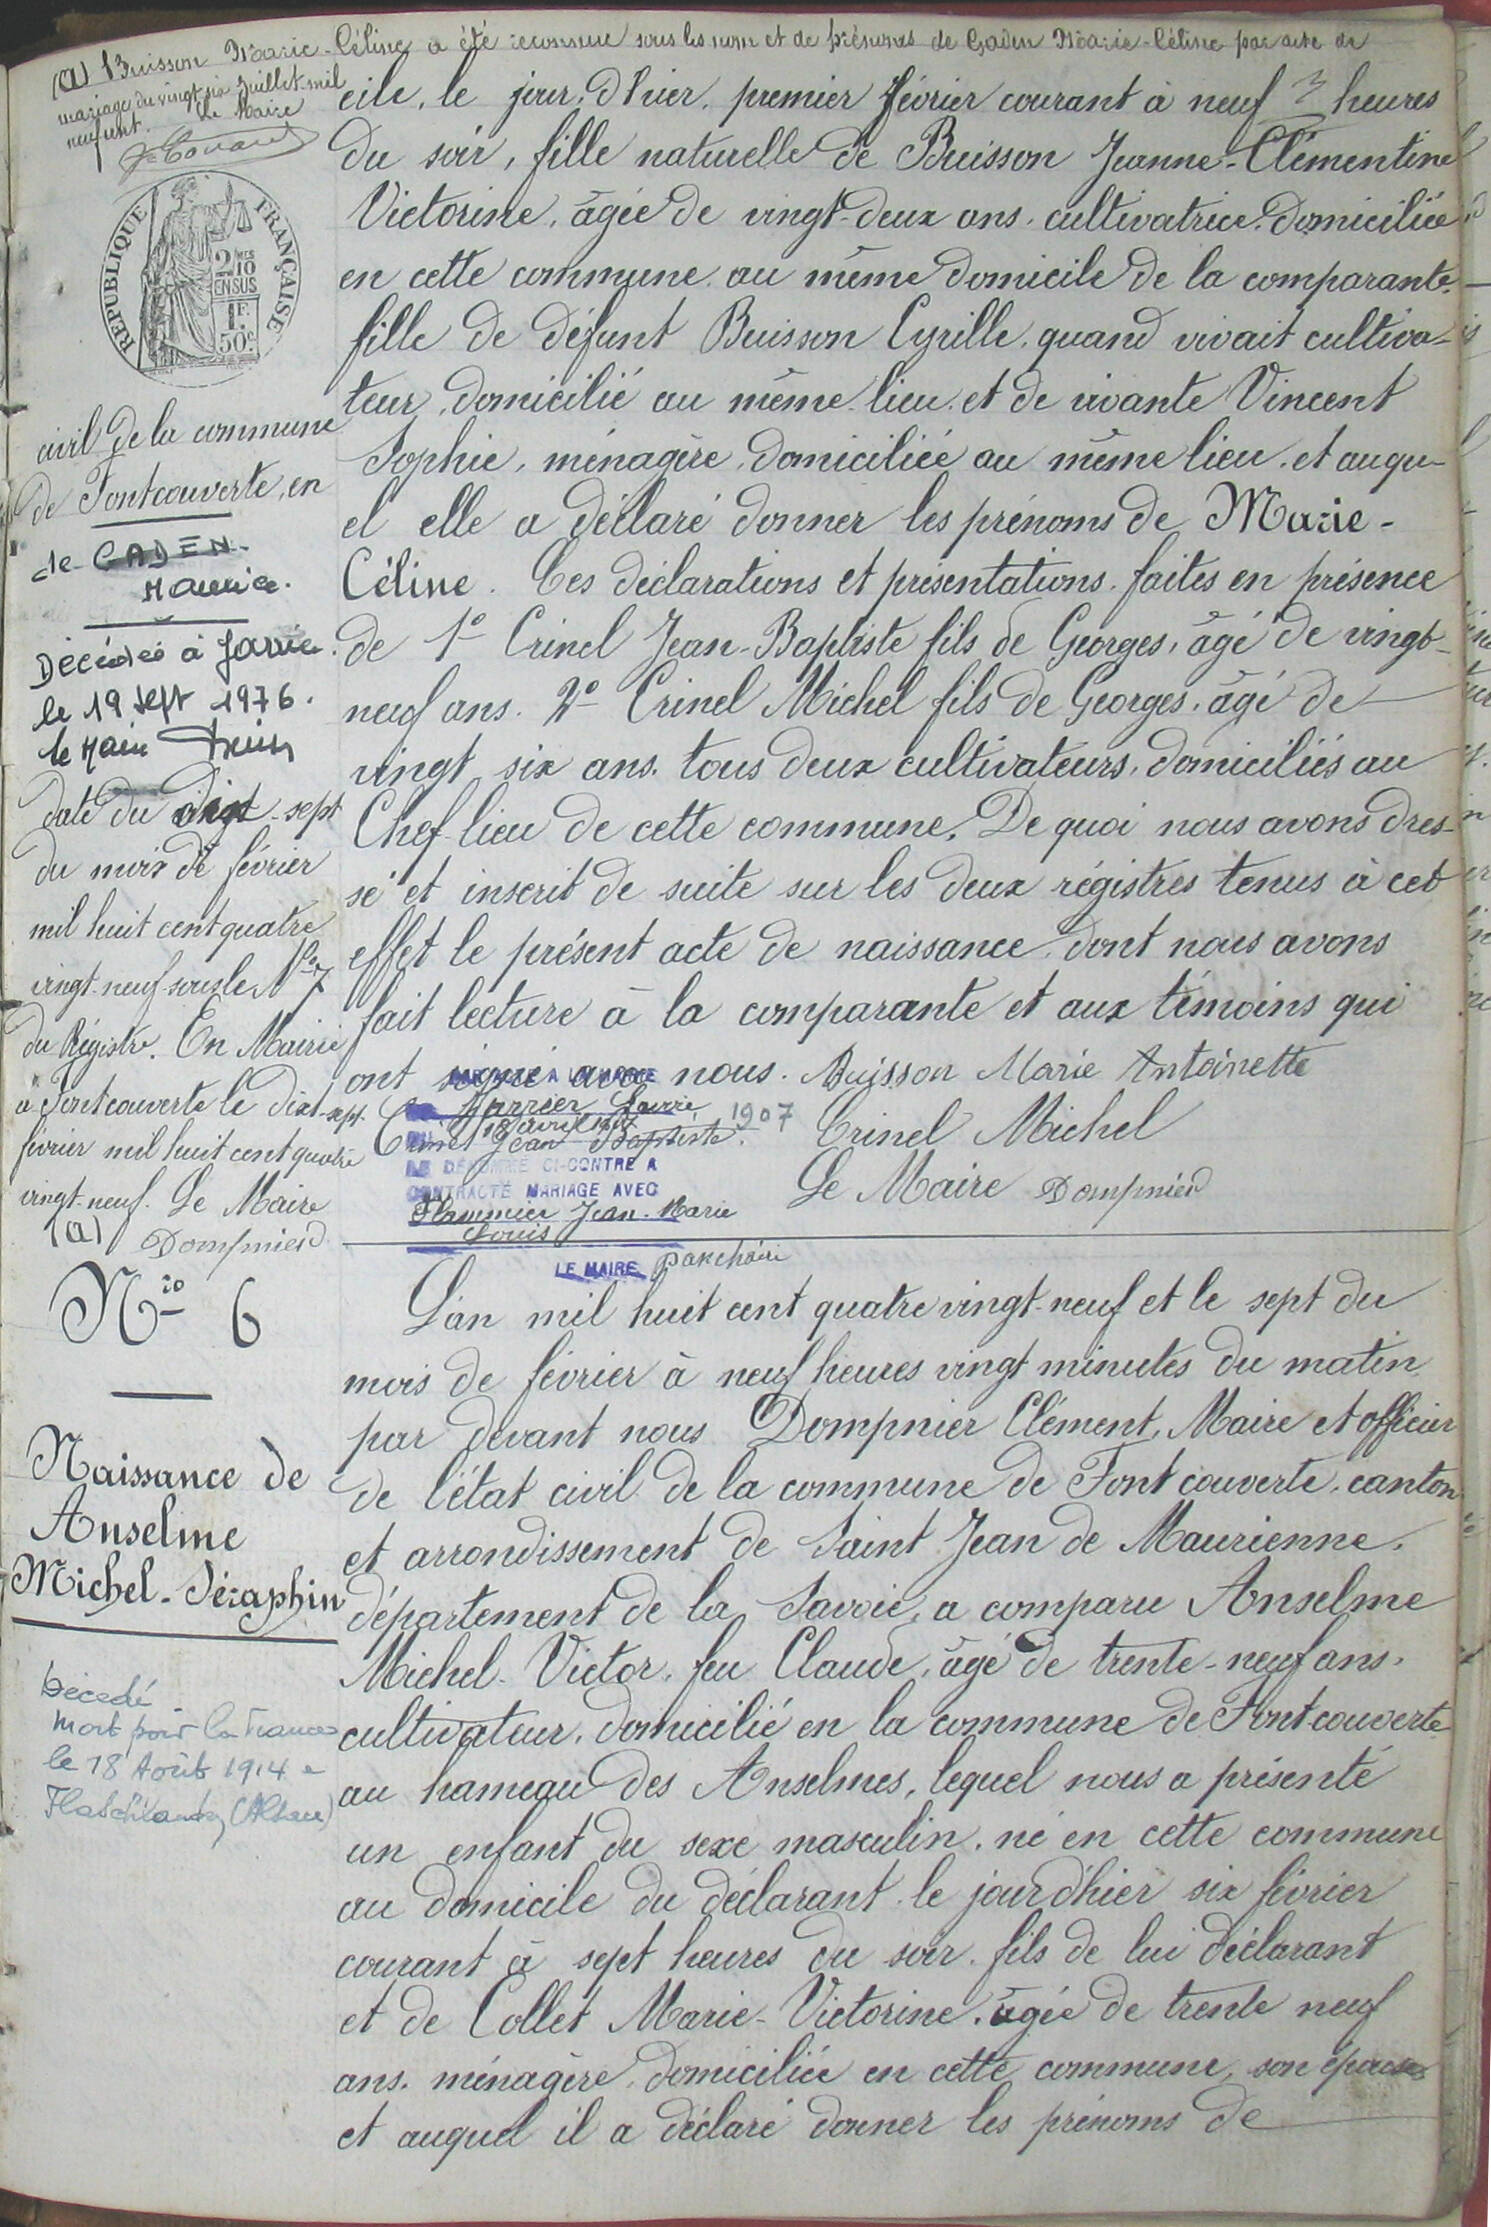 (a) Buisson Marie-Céline a été reconnue sous les nom et de prénoms de Gaden Marie-Céline par acte de
mariage du vingt six Juillet mil
neuf cent. Le Maire
REPUBLIQUE FRANÇAISE
2/10
EN SUS
1F.
50c
civil de la commune
de Fontcouverte, en
de GADEN
Maurice.
Décédée à Jarrie
le 19 Sept 1976.
le Maire
date du dixt-sept
du mois de février
mil huit cent quatre
vingt-neuf sous le No 7
du Régistre. En Mairie
à Fontcouverte le dixt-sept
février mil huit cent quatre
vingt-neuf. Le Maire
(a) Dompnier
cile, le jour d'hier, premier février courant à neuf heures
du soir, fille naturelle de Buisson Jeanne-Clémentine
Victorine, âgée de vingt-deux ans, cultivatrice, domiciliée
en cette commune au même domicile de la comparante,
fille de défunt Buisson Cyrille, quand vivait cultiva-
teur, domicilié au même lieu, et de vivante Vincent
Sophie, ménagère, domiciliée au même lieu, et auqu-
el elle a déclaré donner les prénoms de Marie-
Céline. Ces déclarations et présentations faites en présence
de 1o Crinel Jean-Baptiste fils de Georges, âgé de vingt-
neuf ans. 2o Crinel Michel fils de Georges, âgé de
vingt six ans, tous deux cultivateurs, domiciliés au
Chef-lieu de cette commune. De quoi nous avons dres-
sé et inscrit de suite sur les deux régistres tenus à cet
effet le présent acte de naissance dont nous avons
fait lecture à la comparante et aux témoins qui
ont signé avec nous. Buisson Marie Antoinette
Crinel Jean Baptiste. Crinel Michel
Le Maire Dompnier
A LA MAIRIE
18 avril 1907
LE DÉNOMMÉ CI-CONTRE A
CONTRACTÉ MARIAGE AVEC
Flammier Jean-Marie
Louis
LE MAIRE
No 6
Naissance de
Anselme
Michel-Séraphin
Décédé
Mort pour la France
le 18 Août 1914 à
(Alsace)
L'an mil huit cent quatre vingt-neuf et le sept du
mois de février à neuf heures vingt minutes du matin
par devant nous Dompnier Clément, Maire et officier
de l'état civil de la commune de Fontcouverte, canton
et arrondissement de Saint Jean de Maurienne,
département de la Savoie, a comparu Anselme
Michel-Victor, feu Claude, âgé de trente-neuf ans,
cultivateur, domicilié en la commune de Fontcouverte
au hameau des Anselmes, lequel nous a présenté
un enfant du sexe masculin, né en cette commune
au domicile du déclarant le jour d'hier six février
courant à sept heures du soir, fils de lui déclarant
et de Collet Marie-Victorine, âgée de trente neuf
ans, ménagère, domiciliée en cette commune, son épouse
et auquel il a déclaré donner les prénoms de